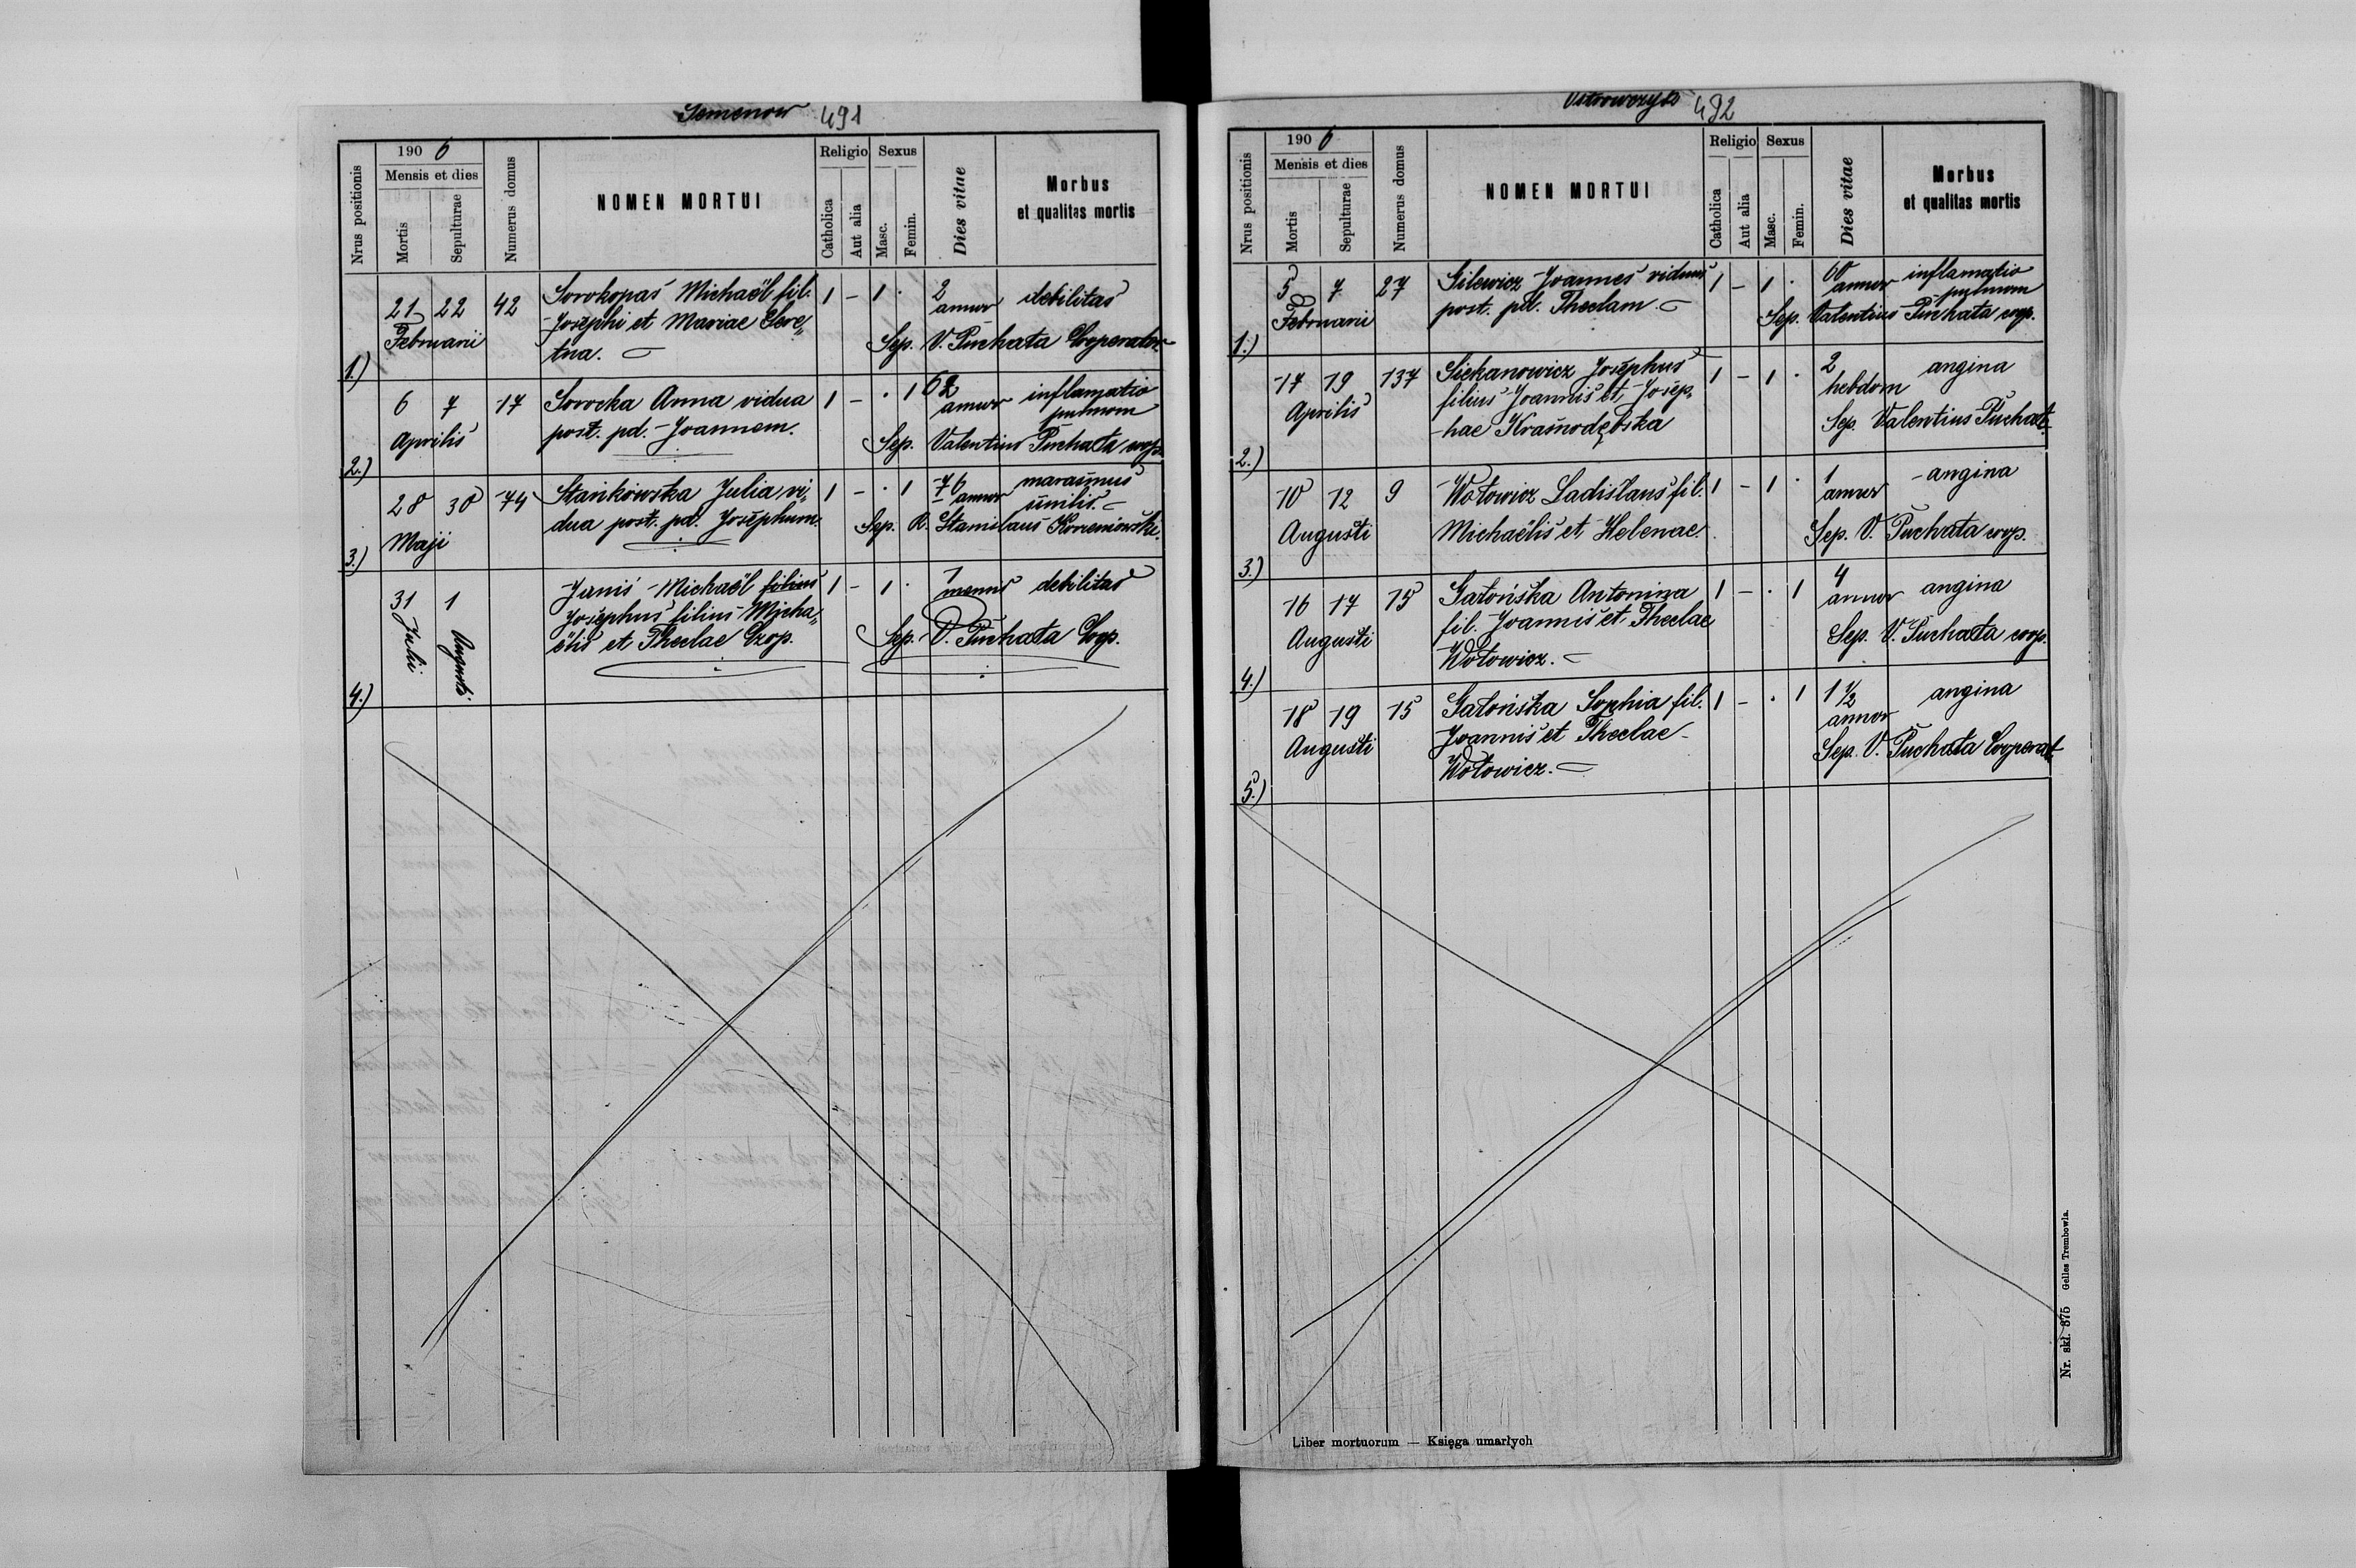 Semenow 491
Nrus positionis
190 6
Mensis et dies
Mortis
Sepulturae
Numerus domus
NOMEN MORTUI
Religio
Catholica
Aut alia
Sexus
Masc.
Femin.
Dies vitae
Morbus
et qualitas mortis
1.)
21 22 42
Februarii
Sorokopas Michaël fil.
Josephi et Mariae Sere„
tna.
1 – 1 ·
2
annor debilitas
Sep. V. Puchała Cooperator
2.)
6 7 17
Aprilis
Sorocka Anna vidua
post. pd. Joannem.
1 – · 1
62
annor inflamatio
pulmom
Sep. Valentius Puchała coop.
3.)
28 30 74
Maji
Stańkowska Julia vi„
dua post. pd. Josephum.
1 – · 1
76
annor marasmus
senilis.
Sep. R. Stanislaus
4.)
31 1
Julii
Augusti.
Janis Michaël filius
Josephus filius Micha„
ëlis et Theclae Czop.
1 – 1 ·
1
mensis debilitas
Sep. V. Puchała Coop.
Ostrowczyk 492
Nrus positionis
190 6
Mensis et dies
Mortis
Sepulturae
Numerus domus
NOMEN MORTUI
Religio
Catholica
Aut alia
Sexus
Masc.
Femin.
Dies vitae
Morbus
et qualitas mortis
1.)
5 7 27
Februarii
Gilewicz Joannes viduus
post. pd. Theclam.
1 – 1 ·
60
annor inflamatio
pulmom
Sep. Valentius Puchała coop.
2.)
17 19 137
Aprilis
Sichanowicz Josephus
filius Joannis et Josep„
hae Krasnodębska
1 – 1 ·
2
hebdom angina
Sep. Valentius Puchał.
3.)
10 12 9
Augusti
Wołowicz Ladislaus fil.
Michaëlis et Helenae.
1 – 1 ·
1
annor angina
Sep. V. Puchała coop.
4.)
16 17 15
Augusti
Gałońska Antonina
fil. Joannis et Theclae
Wołowicz.
1 – · 1
4
annor angina
Sep. V. Puchała coop.
5.)
18 19 15
Augusti
Gałońska Sophia fil.
Joannis et Theclae
Wołowicz.
1 – · 1
1 1/2
annor angina
Sep. V. Puchała Cooperat.
Liber mortuorum — Księga umarłych
Nr. skł. 375 Gelles Trembowla.